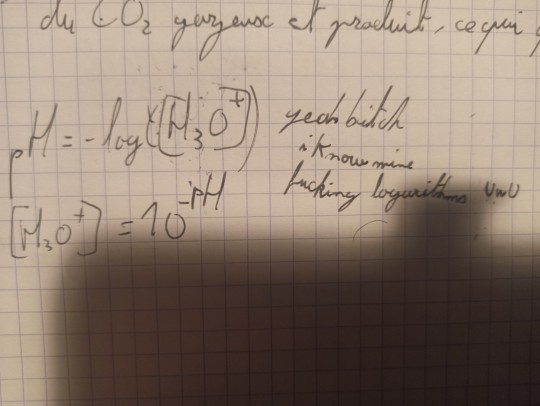 du CO₂ gazeux est produit, ce qui
pH = -log([H₃O⁺])
yeah bitch
i know mine
fucking logarithms UwU
[H₃O⁺] = 10^-pH